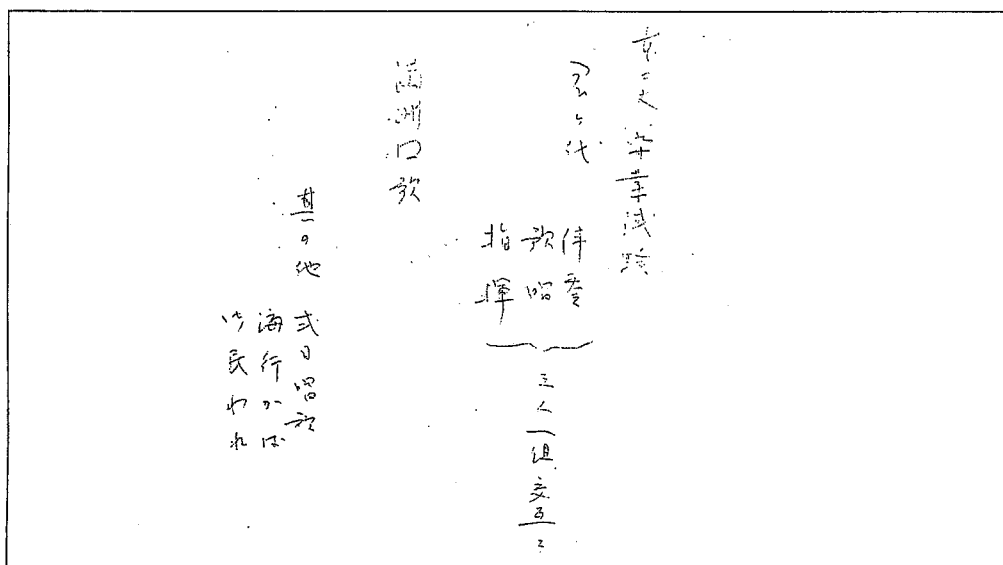 女二大 卒業試験
君が代
伴奏
歌唱
指揮
三人一組交互ニ
満洲国歌
其の他
式日唱歌
海行かば
み民われ